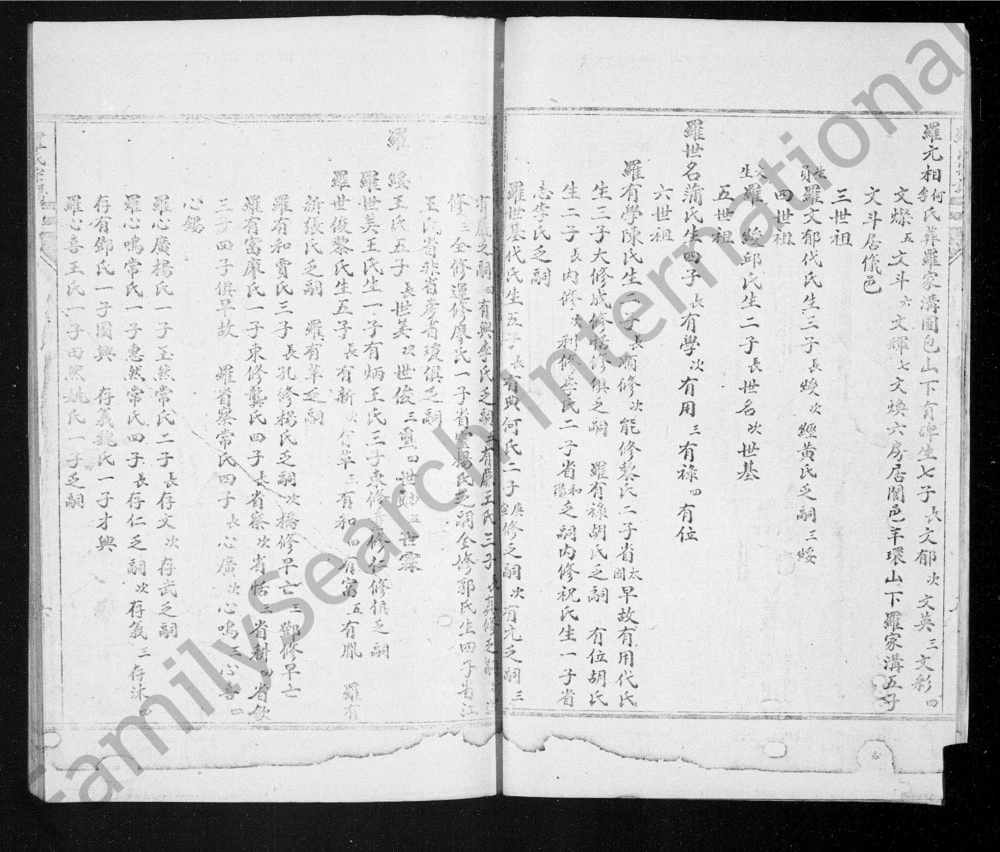 羅元相何李氏葬羅家溝圓包山下有碑生七子長文郁次文英三文彩四
文燦五文斗六文輝七文煥六房居閬邑羊環山下羅家溝五子
文斗居儀邑
三世祖
羅文郁代氏生三子長綬次經黃氏乏嗣三綏
四世祖
羅綬邱氏生二子長世名次世基
五世祖
羅世名蒲氏生四子長有學次有用三有祿四有位
六世祖
羅有學陳氏生二子長爾修次能修黎氏二子省太早故有用代氏
生三子大修成修活修俱乏嗣 羅有祿胡氏乏嗣 有位胡氏
生二子長內修次利修 氏二子省和乏嗣內修祝氏生一子省
志李氏乏嗣
羅世基代氏生五子長有典何氏二子 修乏嗣次有尢乏嗣三
乏嗣四有興李氏乏嗣五有 王氏三子長 修乏嗣
修三全修運修廖氏一子省 楊氏乏嗣全修郭氏生四子省江
王氏省非省彥省瓊俱乏嗣
羅綏王氏五子長世美次世俊三 四世 五世霖
羅世美王氏生一子有炳王氏三子東修 修 修俱乏嗣
羅世俊黎氏生五子長有新次 三有和四有富五有胤 羅有
新張氏乏嗣 羅有華乏嗣
羅有和賈氏三子長孔修楊氏乏嗣次橋修早亡三鄧修早亡
羅有富廖氏一子東修龔氏四子長省察次省恬三省耕四省欽
三子四子俱早故 羅省察常氏四子長心廣次心鳴三心喜四
心錫
羅心廣楊氏一子玉然常氏二子長存文次存武乏嗣
羅心鳴常氏一子惠然常氏四子長存仁乏嗣次存義三存沐四
存有鄧氏一子國興 存義魏氏一子才興
羅心喜王氏一子田然姚氏一子乏嗣
FamilySearch International